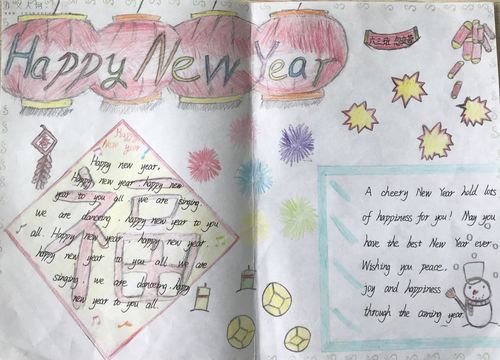 Happy New Year
Happy
New Year
春
福
Happy new year,
Happy new year happy new
year to you all we are singing
we are danceing happy new year to you
all. Happy new year happy new year.
happy new year to you all we are
singing. we are danceing happy
new year to you all.
A cheery New Year hold lots
of happiness for you! May you
have the best New Year ever.
Wishing you peace,
joy and happiness
through the coming year